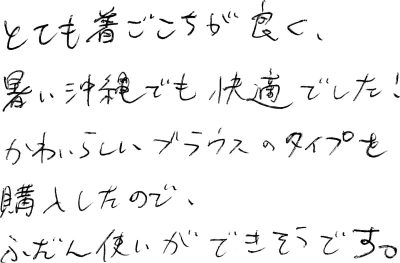 とても着ごこちが良く、
暑い沖縄でも快適でした！
かわいらしいブラウスのタイプを
購入したので、
ふだん使いができそうです。